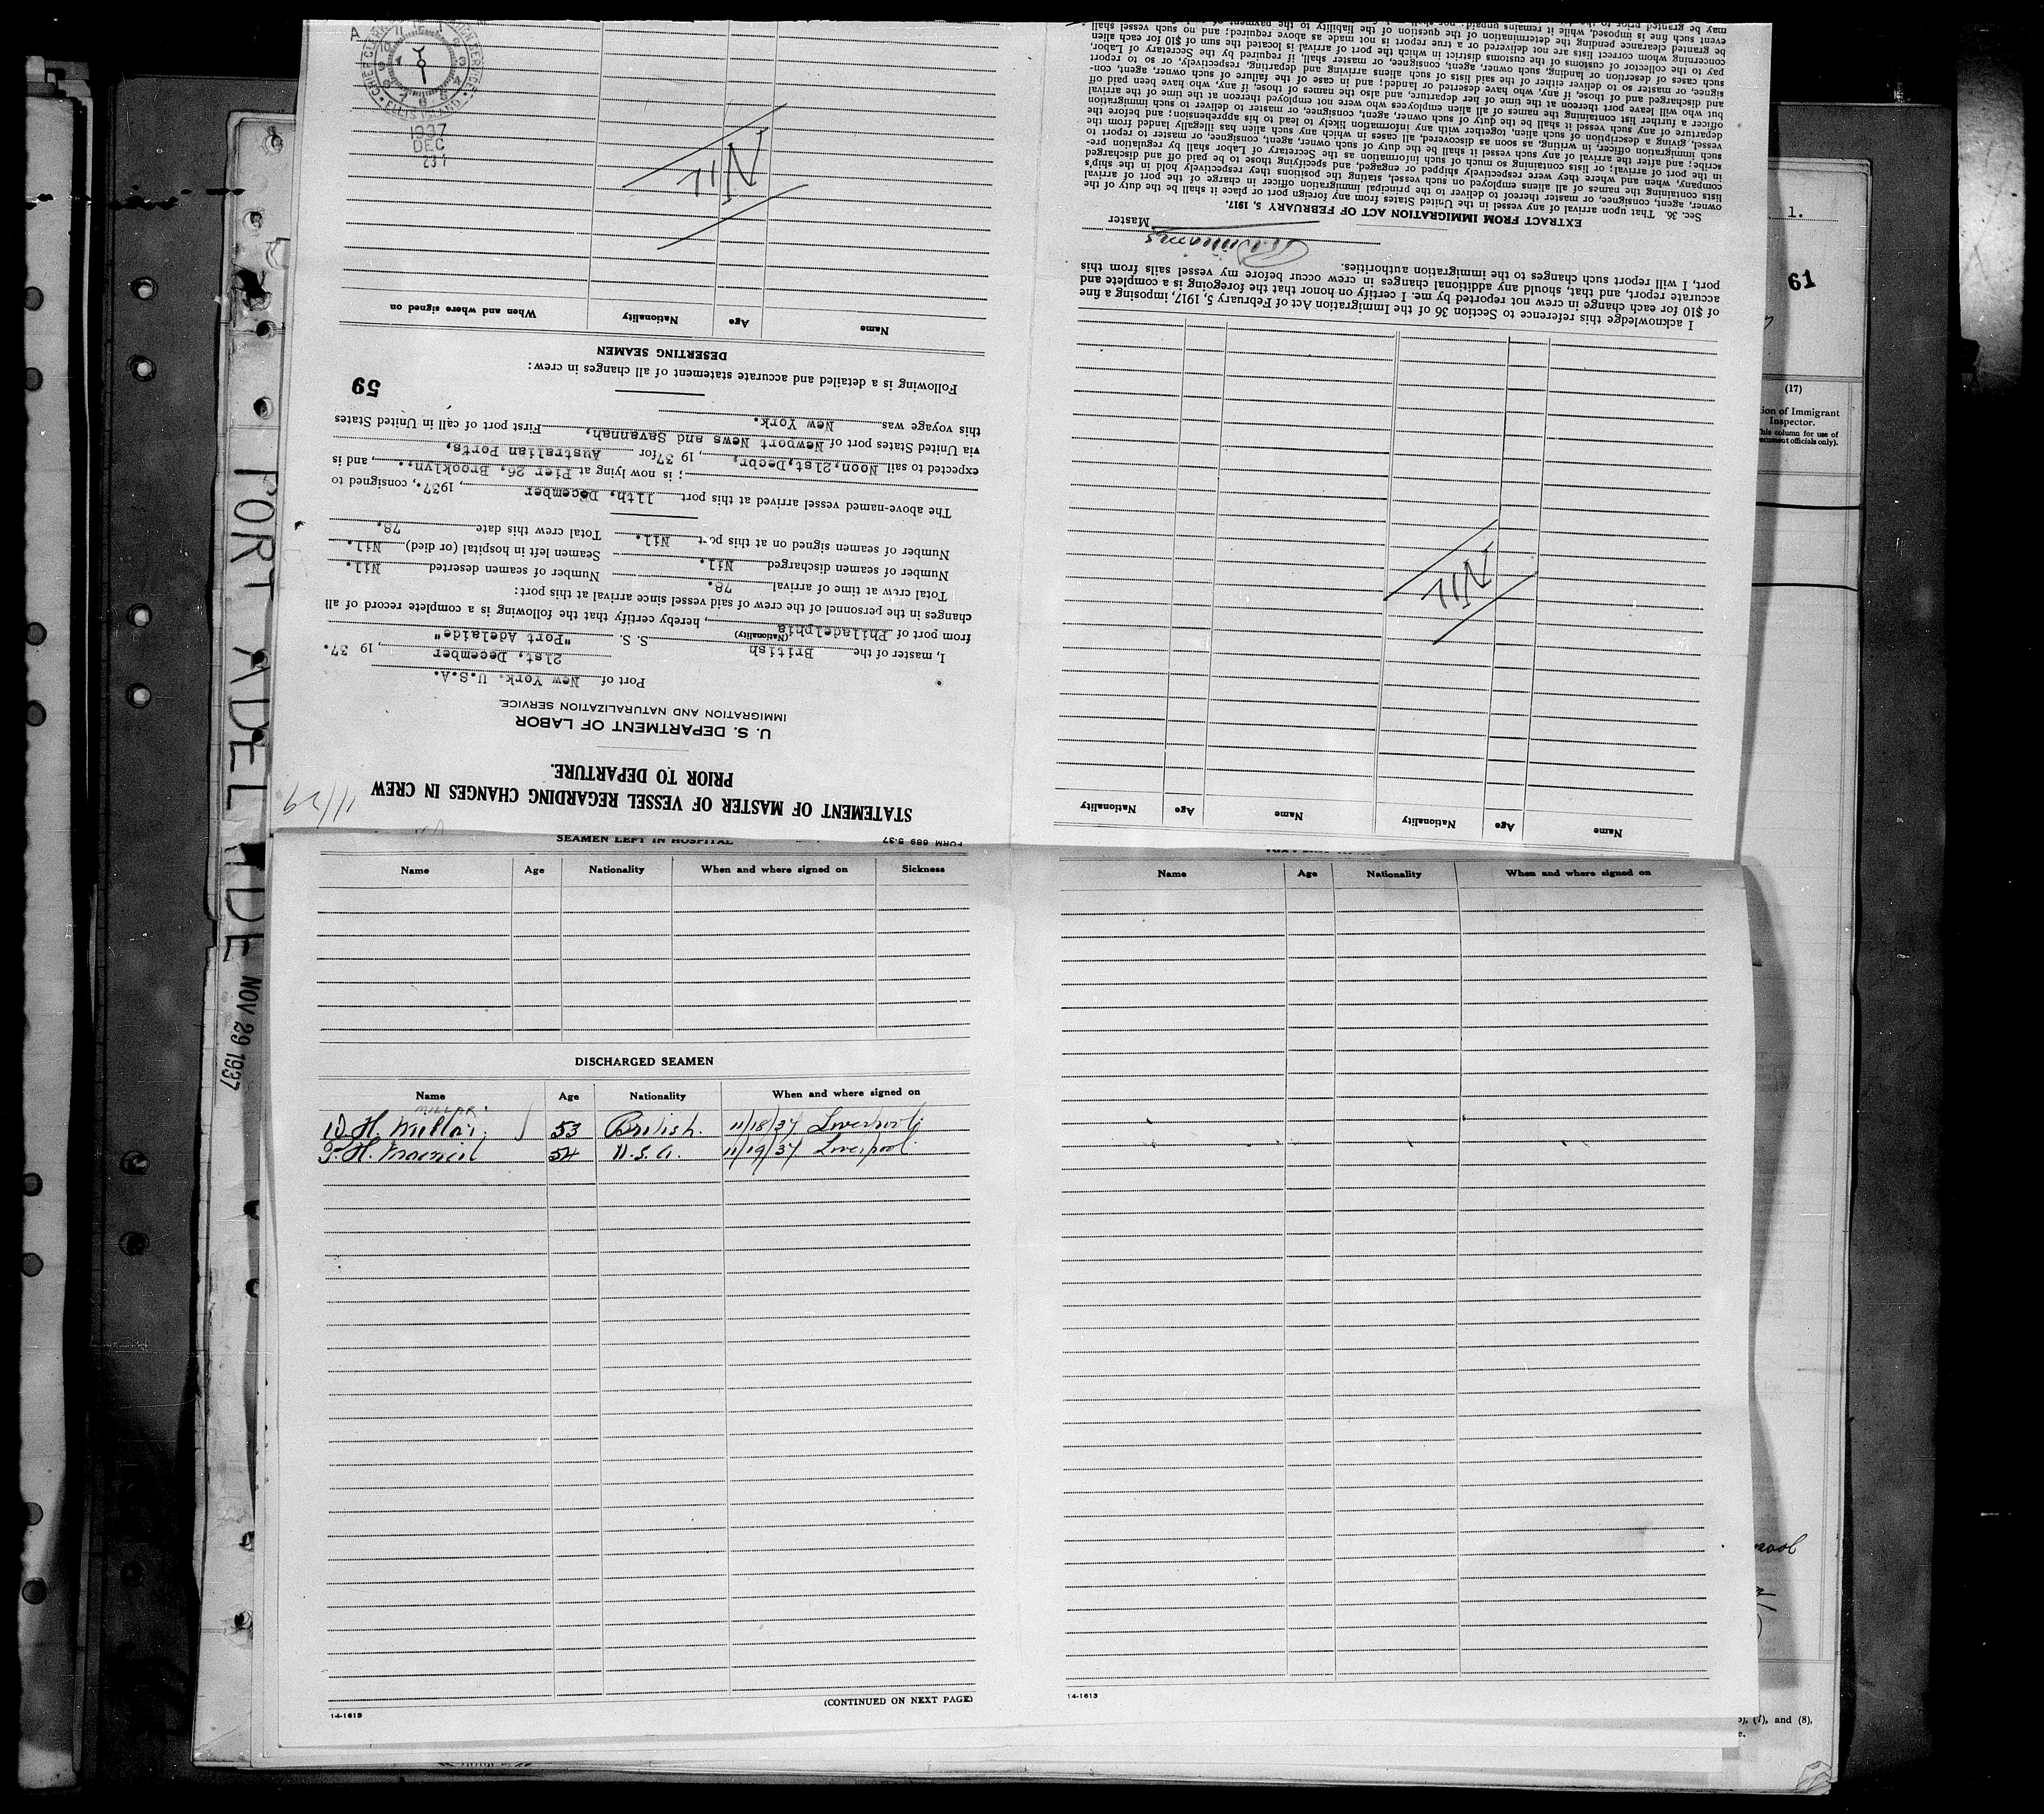 PORT ADELAIDE NOV 29 1937
STATEMENT OF MASTER OF VESSEL REGARDING CHANGES IN CREW
PRIOR TO DEPARTURE.
11/29
U. S. DEPARTMENT OF LABOR
IMMIGRATION AND NATURALIZATION SERVICE.
Port of New York. U.S.A.
21st. December, 19 37.
I, master of the British S. S. "Port Adelaide"
(Nationality)
from port of Philadelphia, hereby certify that the following is a complete record of all
changes in the personnel of the crew of said vessel since arrival at this port:
Total crew at time of arrival 78. Number of seamen deserted Nil.
Number of seamen discharged Nil. Seamen left in hospital (or died) Nil.
Number of seamen signed on at this port Nil. Total crew this date 78.
The above-named vessel arrived at this port 11th. December, 1937., consigned to
; is now lying at Pier 26, Brooklyn., and is
expected to sail Noon,21st,Decbr., 19 37 for Australian Ports,
via United States port of Newport News and Savannah, First port of call in United States
this voyage was New York.
59
Following is a detailed and accurate statement of all changes in crew:
DESERTING SEAMEN
Name Age Nationality When and where signed on
Nil
1937
DEC
23 1
Name Age Nationality Name Age Nationality
Nil
I acknowledge this reference to Section 36 of the Immigration Act of February 5, 1917, imposing a fine
of $10 for each change in crew not reported by me. I certify on honor that the foregoing is a complete and
accurate report, and that, should any additional changes in crew occur before my vessel sails from this
port, I will report such changes to the immigration authorities.
Williams Master
EXTRACT FROM IMMIGRATION ACT OF FEBRUARY 5, 1917.
Sec. 36. That upon arrival of any vessel in the United States from any foreign port or place it shall be the duty of the
owner, agent, consignee, or master thereof to deliver to the principal immigration officer in charge of the port of arrival
lists containing the names of all aliens employed on such vessel, stating the positions they respectively hold in the ship's
company, when and where they were respectively shipped or engaged, and specifying those to be paid off and discharged
in the port of arrival; or lists containing so much of such information as the Secretary of Labor shall by regulation pre-
scribe; and after the arrival of any such vessel it shall be the duty of such owner, agent, consignee, or master to report to
such immigration officer, in writing, as soon as discovered, all cases in which any such alien has illegally landed from the
vessel, giving a description of such alien, together with any information likely to lead to his apprehension; and before the
departure of any such vessel it shall be the duty of such owner, agent, consignee, or master to deliver to such immigration
officer a further list containing the names of all alien employees who were not employed thereon at the time of the arrival
but who will leave port thereon at the time of her departure, and also the names of those, if any, who have been paid off
and discharged and of those, if any, who have deserted or landed; and in case of the failure of such owner, agent, con-
signee, or master so to deliver either of the said lists of such aliens arriving and departing, respectively, or so to report
such cases of desertion or landing, such owner, agent, consignee, or master shall, if required by the Secretary of Labor,
pay to the collector of customs of the customs district in which the port of arrival is located the sum of $10 for each alien
concerning whom correct lists are not delivered or a true report is not made as above required; and no such vessel shall
be granted clearance pending the determination of the question of the liability to the payment of
event such fine is imposed, while it remains unpaid; nor shall
may be granted prior to the
FORM 689 5-37
SEAMEN LEFT IN HOSPITAL
Name Age Nationality When and where signed on Sickness
DISCHARGED SEAMEN
Name Age Nationality When and where signed on
MILLAR
D H. Millar 53 British. 11/18/37 Liverpool
H. 54 U.S.A. 11/19/37 Liverpool
(CONTINUED ON NEXT PAGE)
14-1613
Name Age Nationality When and where signed on
14-1613
1.
61
(17)
Inspector.
(7), and (8),